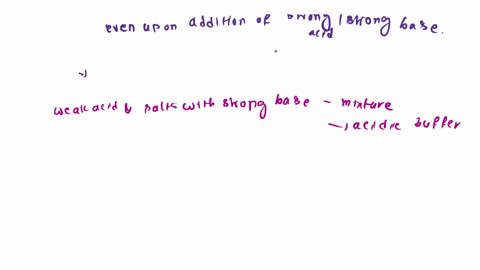 even upon addition of strong acid / strong base.
→
weak acid & salts with strong base - mixture
→ acidic buffer